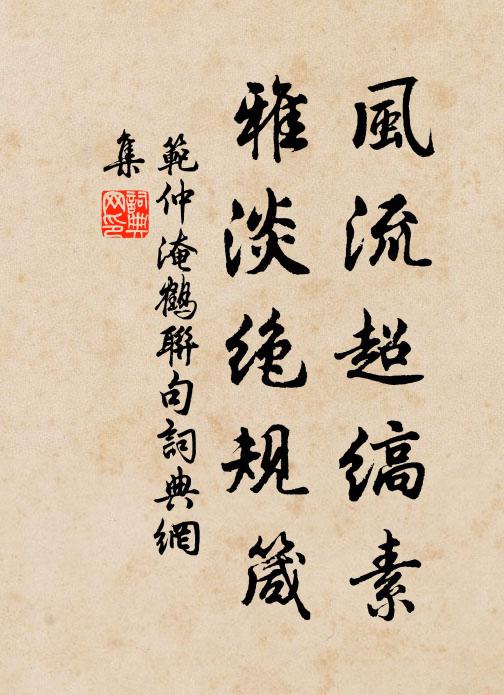 風流超縞素
雅淡絕規箴
範仲淹鶴聯句詞典網
集
詞典
网印